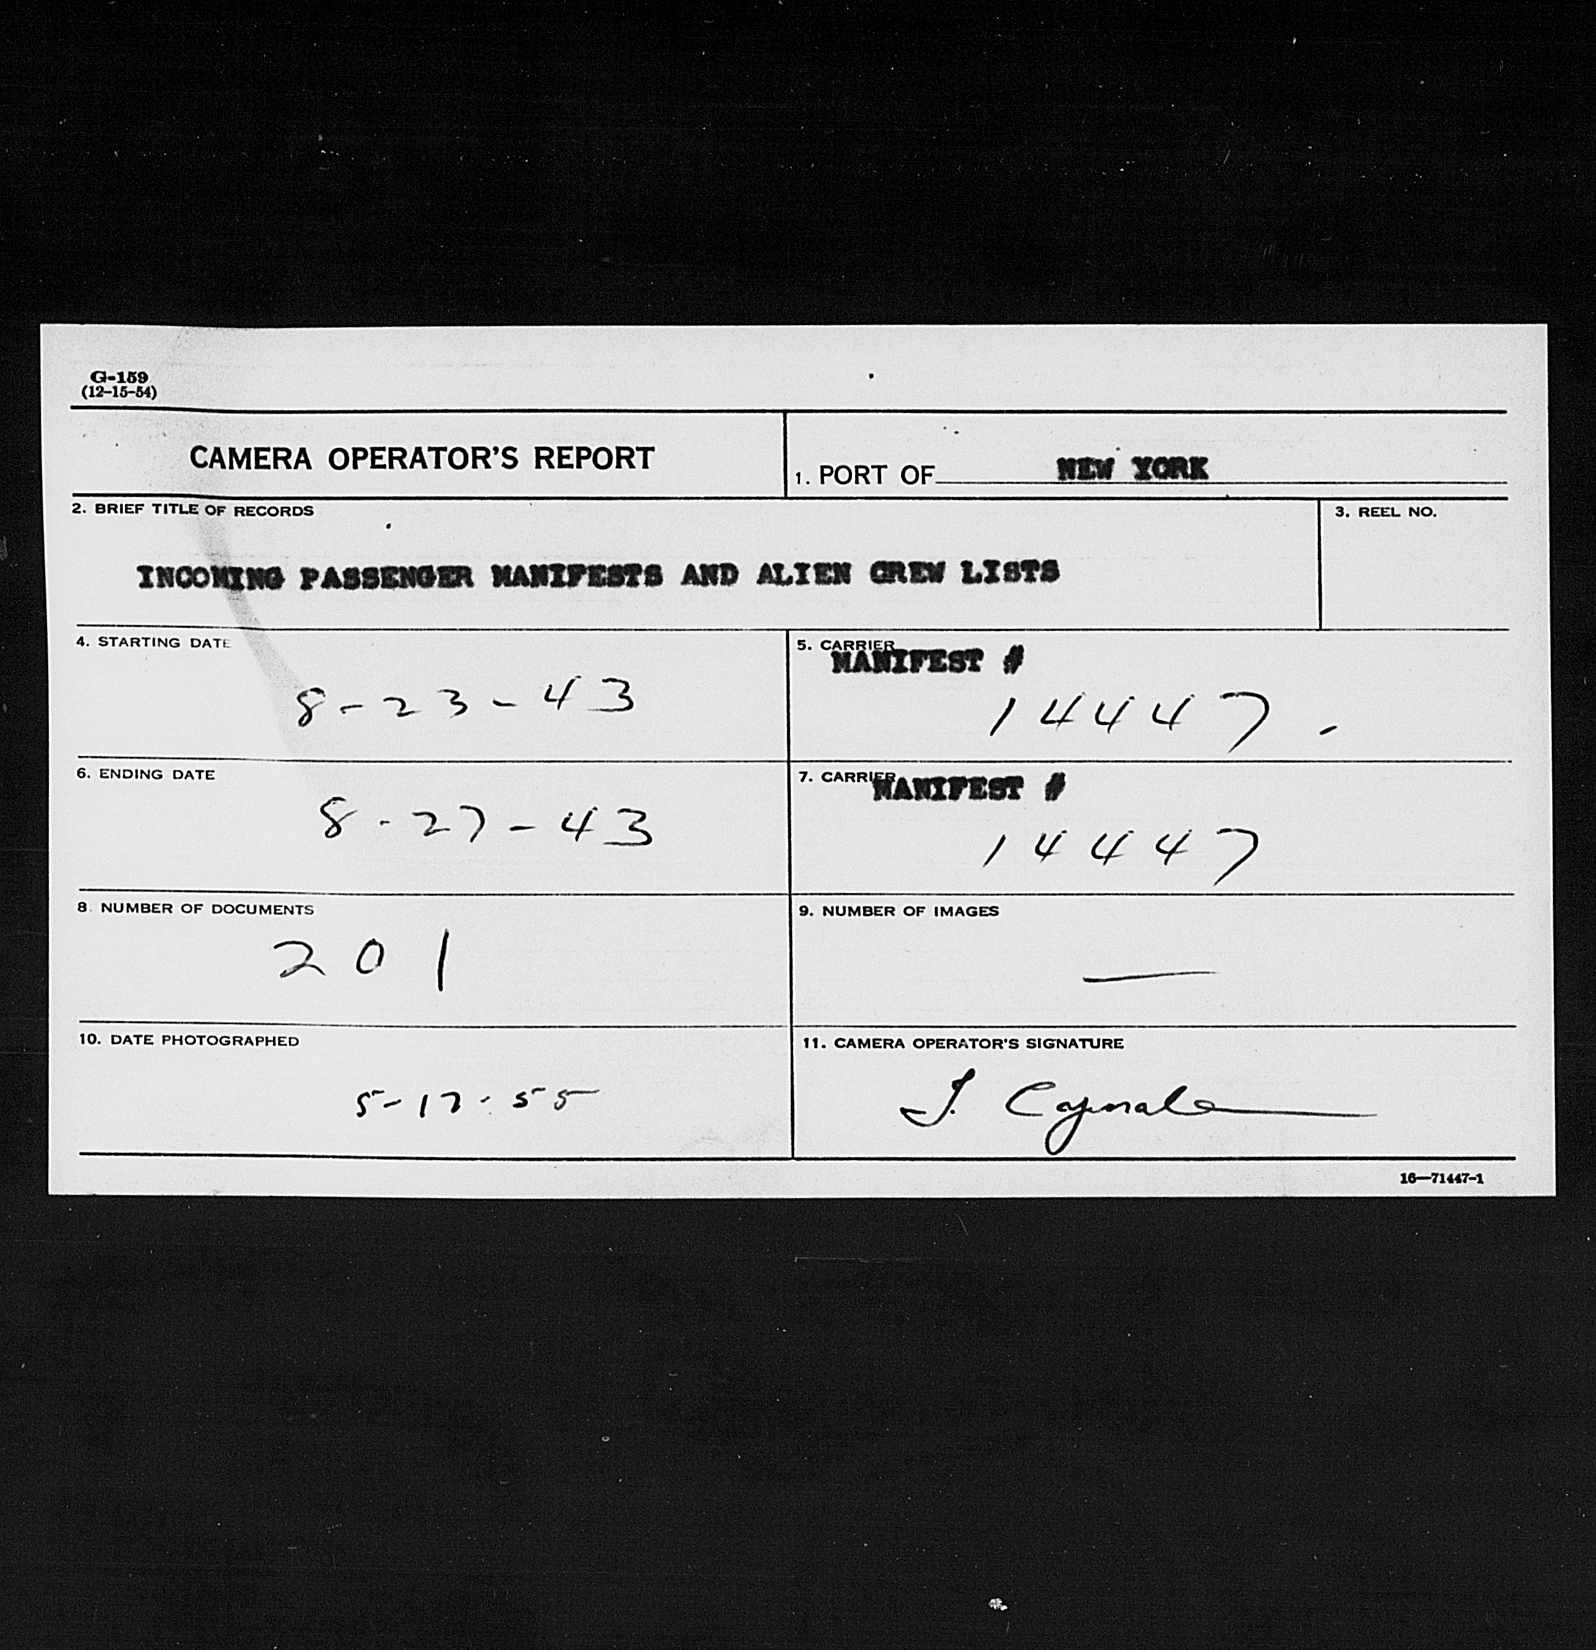 G-159
(12-15-54)
CAMERA OPERATOR'S REPORT
1. PORT OF NEW YORK
2. BRIEF TITLE OF RECORDS
3. REEL NO.
INCOMING PASSENGER MANIFESTS AND ALIEN CREW LISTS
4. STARTING DATE
8-23-43
5. CARRIER
MANIFEST #
14447.
6. ENDING DATE
8-27-43
7. CARRIER
MANIFEST #
14447
8. NUMBER OF DOCUMENTS
201
9. NUMBER OF IMAGES
—
10. DATE PHOTOGRAPHED
5-17-55
11. CAMERA OPERATOR'S SIGNATURE
J.
16—71447-1